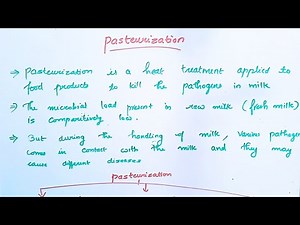 Pasteurization
→ Pasteurization is a heat treatment applied to
food products to kill the pathogens in milk
→ The microbial load present in raw milk (fresh milk)
is comparitively less.
→ But during the handling of milk, Varios pathogen
comes in contact with the milk and they may
cause different diseases
pasteurization